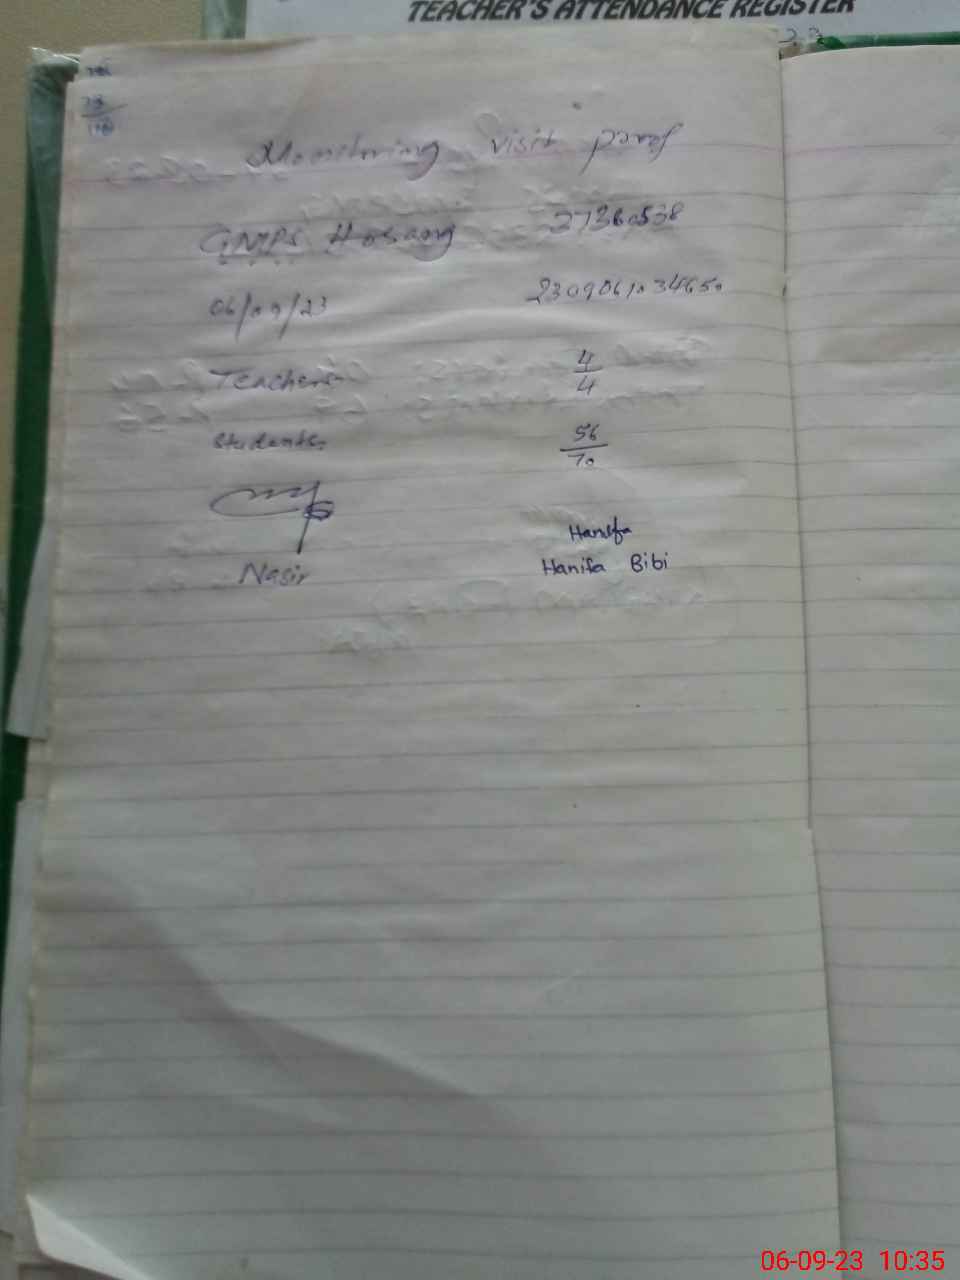 TEACHER'S ATTENDANCE REGISTER
Monitoring visit proof
GMPS Hosang 27360538
06/09/23 2309061034650
Teachers 4/4
Students 56/70
Hanifa
Nasir Hanifa Bibi
06-09-23 10:35